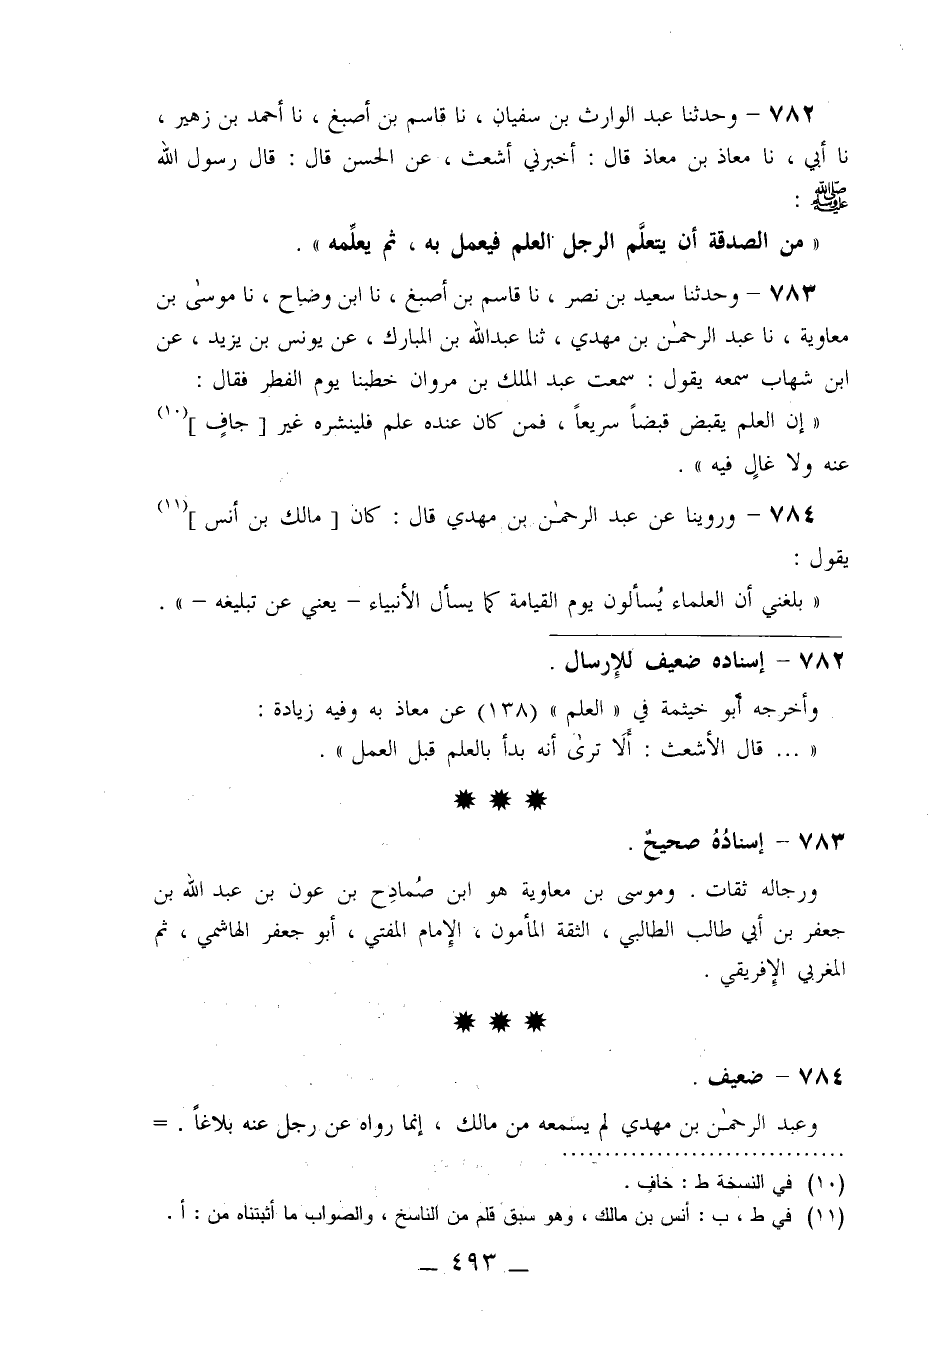 ٧٨٢ – وحدثنا عبد الوارث بن سفيان ، نا قاسم بن أصبغ ، نا أحمد بن زهير ،
نا أبي ، نا معاذ بن معاذ قال : أخبرني أشعث ، عن الحسن قال : قال رسول الله
ﷺ :
« من الصدقة أن يتعلَّم الرجل العلم فيعمل به ، ثم يعلِّمه » .
٧٨٣ – وحدثنا سعيد بن نصر ، نا قاسم بن أصبغ ، نا ابن وضاح ، نا موسىٰ بن
معاوية ، نا عبد الرحمٰن بن مهدي ، ثنا عبدالله بن المبارك ، عن يونس بن يزيد ، عن
ابن شهاب سمعه يقول : سمعت عبد الملك بن مروان خطبنا يوم الفطر فقال :
« إن العلم يقبض قبضاً سريعاً ، فمن كان عنده علم فلينشره غير [ جافٍ ](١٠)
عنه ولا غالٍ فيه » .
٧٨٤ – وروينا عن عبد الرحمٰن بن مهدي قال : كان [ مالك بن أنس ](١١)
يقول :
« بلغني أن العلماء يُسألون يوم القيامة كما يسأل الأنبياء – يعني عن تبليغه – » .
٧٨٢ – إسناده ضعيف للإرسال .
وأخرجه أبو خيثمة في « العلم » (١٣٨) عن معاذ به وفيه زيادة :
« ... قال الأشعث : أَلَا ترىٰ أنه بدأ بالعلم قبل العمل » .
✸ ✸ ✸
٧٨٣ – إسنادُهُ صحيحٌ .
ورجاله ثقات . وموسى بن معاوية هو ابن صُمادِح بن عون بن عبد الله بن
جعفر بن أبي طالب الطالبي ، الثقة المأمون ، الإمام المفتي ، أبو جعفر الهاشمي ، ثم
المغربي الإفريقي .
✸ ✸ ✸
٧٨٤ – ضعيف .
وعبد الرحمٰن بن مهدي لم يسمعه من مالك ، إنما رواه عن رجل عنه بلاغاً . =
(١٠) في النسخة ط : خافٍ .
(١١) في ط ، ب : أنس بن مالك ، وهو سبق قلم من الناسخ ، والصواب ما أثبتناه من : أ .
– ٤٩٣ –